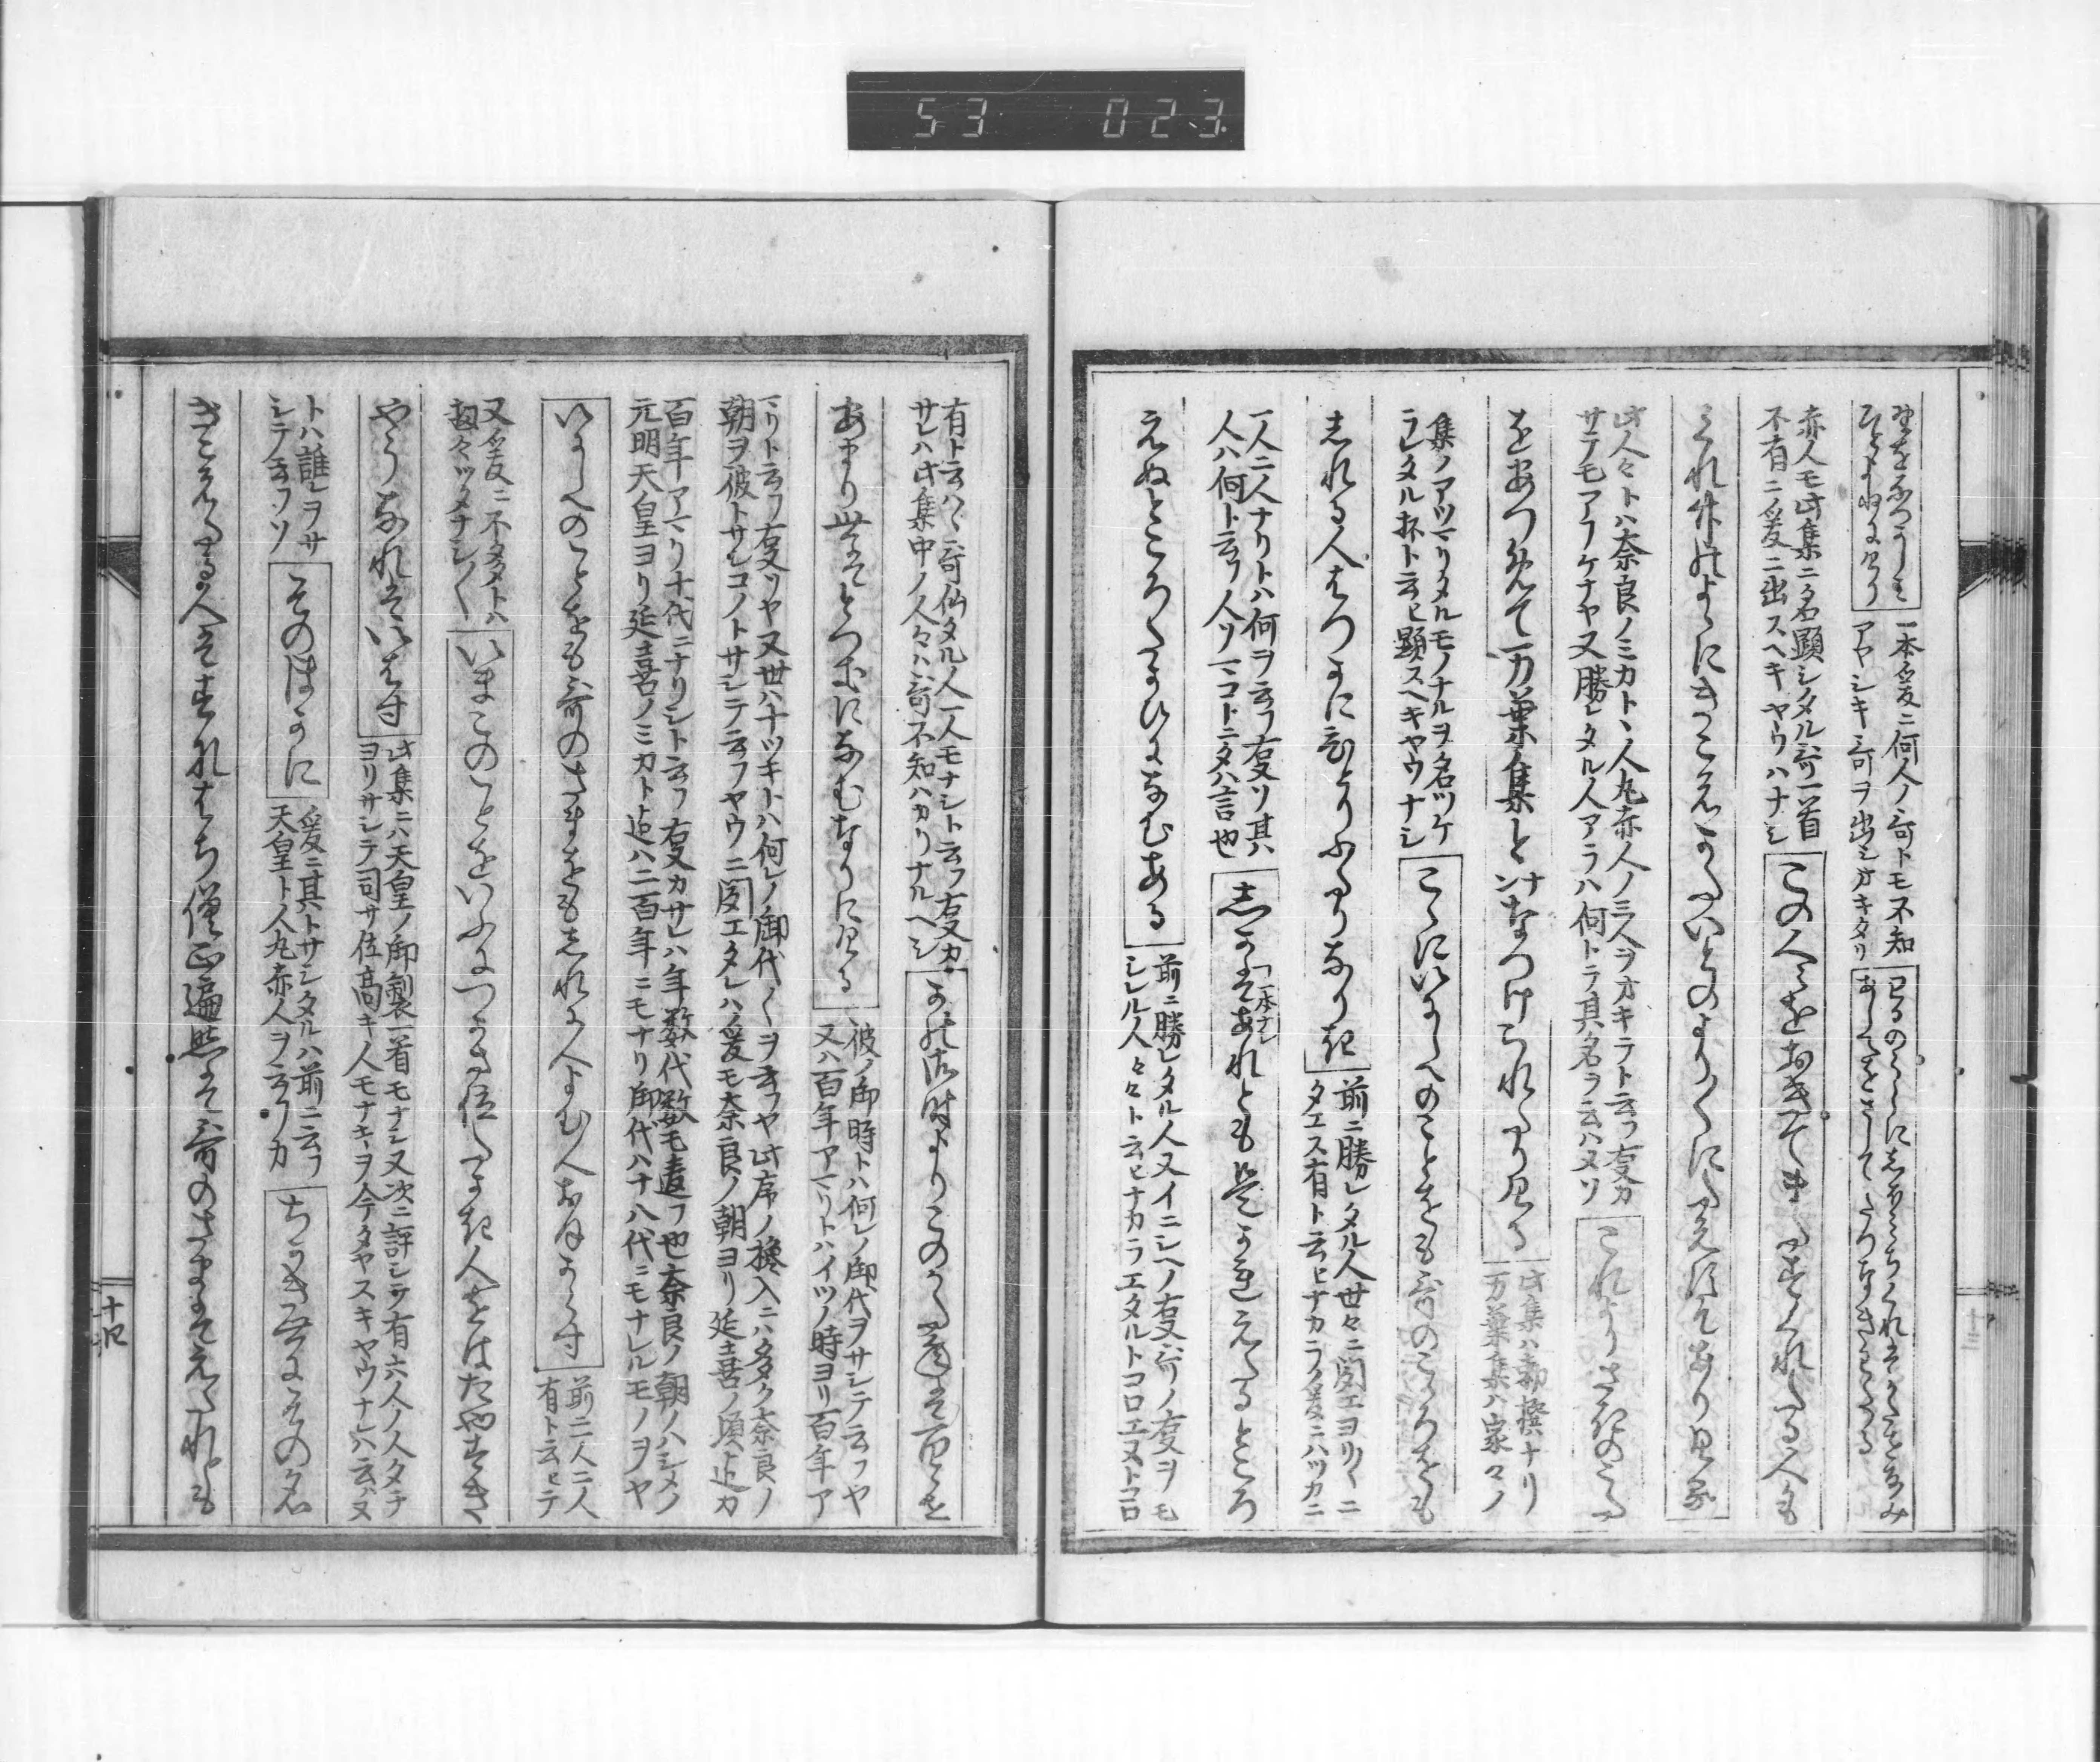 53 023
野をなつかしミ
ひとよねにける
一本爰ニ何人ノ哥トモ不知
アヤシキ哥ヲ出シオキタリ
赤人モ此集ニ名顕シタル哥一首
不有ニ爰ニ出スヘキヤウハナシ
この人々をおきてまたすくれたる人も
くれ竹のよゝにきこえかたいとのより〳〵にたえすそありける
此人々トハ奈良ノミカト、人丸赤人ノ三人ヲオキテト云フ叓カ
サテモアフケナヤ又勝レタル人アラハ何トテ其名ラ云ハヌソ
これよりさきのうた
をあつめて万葉集となつけられたりける
此集ハ勅撰ナリ
万葉集ハ家々ノ
集ノアツマリタルモノナルヲ名ツケ
ラレタル抔ト云ヒ顕スヘキヤウナシ
こゝにいにしへのことをも哥のこゝろをも
しれる人はつかにひとりふたりなりき
前ニ勝レタル人世々ニ聞エヨリ〳〵ニ
タエス有ト云ヒナカラ爰ニハツカニ
一人二人ナリトハ何ヲ云フ叓ソ其ハ
人ハ何ト云フ人ソマコトニタハ言也
志かはあれとも是かれえたるところ
一本ナシ
えぬところたかひになむある
前ニ勝レタル人又イニシヘノ叓哥ノ叓ヲモ
シレル人々ト云ヒナカラエタルトコロエヌトコロ
有ト云ハヽ哥仙タル人一人モナシト云フ叓カ
サレハ此集中ノ人々ハ哥不知ハカリナルヘシ
かの御時よりこのかた年は百とせ
あまり世はとつきになむなりにける
彼ノ御時トハ何レノ御代ヲサシテ云フヤ
又ハ百年アマリトハイツノ時ヨリ百年ア
マリト云フ叓ソヤ又世ハ十ツキトハ何レノ御代〳〵ヲ云フヤ此序ノ撰入ニハ多ク奈良ノ
朝ヲ彼トサシコノトサシテ云フヤウニ聞エタレハ爰モ奈良ノ朝ヨリ延喜ノ頃迄カ
百年アマリ十代ニナリシト云フ叓カサレハ年数代数モ違フ也奈良ノ朝ノハシメノ
元明天皇ヨリ延喜ノミカト迄ハ二百年ニモナリ御代ハ十八代ニモナレルモノヲヤ
いにしへのことをも哥のさまをもしれる人よむ人おほからす
前ニ一人二人
有ト云ヒテ
又爰ニ不多トハ
いまこのことをいふにつかさ位たかき人をはたやすき
やうなれはいれす
此集ニハ天皇ノ御製一首モナシ又次ニ評シテ有六人ノ人タチ
ヨリサシテ司サ位高キ人モナキヲ今タヤスキヤウナレハ云ハヌ
トハ誰レヲサ
シテ云フソ
そのほかに
爰ニ其トサシタルハ前ニ云フ
天皇ト人丸赤人ヲ云フカ
ちかき世にその名
きこえたる人はすなはち僧正遍照は哥のさまはえたれとも
十四